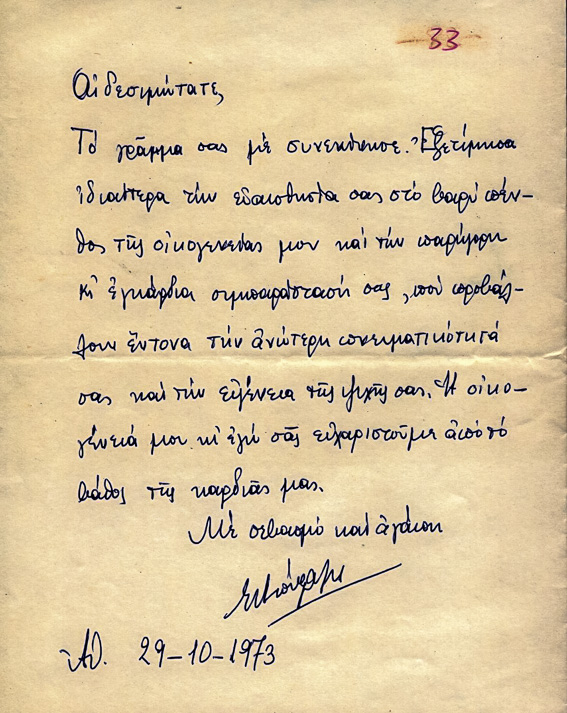 33
Αἰδεσιμώτατε,
Τό γρᾶμμα σας μέ συνεκίνησε. Ἐξετίμησα
ἰδιαίτερα τήν εὐαισθησία σας στό βαρύ πέν-
θος τῆς οἰκογενείας μου καί τήν παρήγορη
κι ἐγκάρδια συμπαράστασή σας, πού προβάλ-
λουν ἔντονα τήν ἀνώτερη πνευματικότητά
σας καί τήν εὐγένεια τῆς ψυχῆς σας. Ἡ οἰκο-
γένειά μου κι ἐγώ σᾶς εὐχαριστοῦμε ἀπό τό
βάθος τῆς καρδιᾶς μας.
Μέ σεβασμό καί ἀγάπη
Ἀθ. 29-10-1973